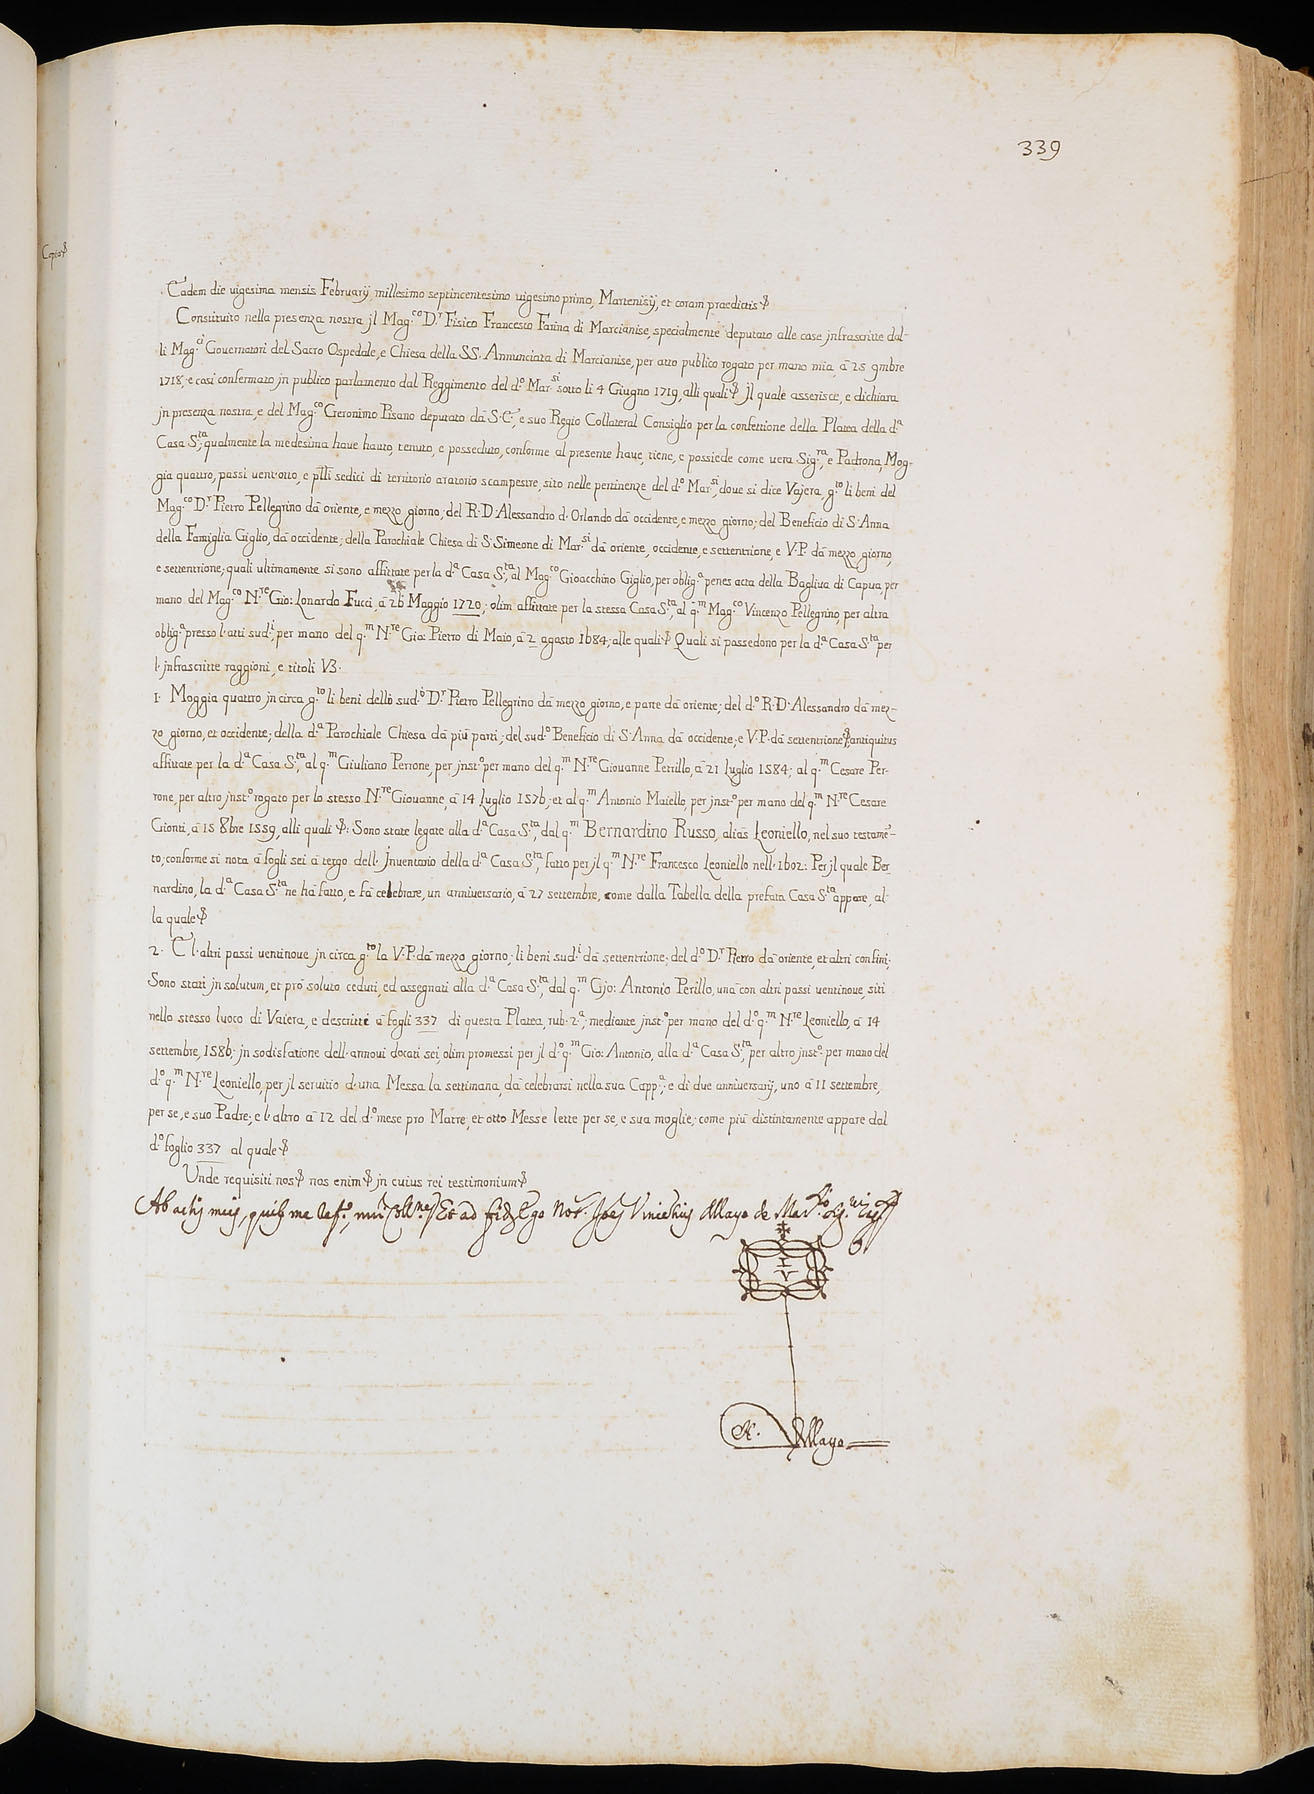 339
Copia
Eadem die vigesima mensis Februarij millesimo septincentesimo vigesimo primo, Martenisij, et coram praedictis
Constituito nella presenza nostra jl Mag.co D.r Fisico Francesco Farina di Marcianise, specialmente deputato alle cose jnfrascritte dal-
li Mag.ci Governatori del Sacro Ospedale, e Chiesa della SS. Annunciata di Marcianise, per atto publico rogato per mano mia, à 25 9mbre
1718; e così confermato jn publico parlamento dal Reggimento del d.o Mar.si sotto li 4 Giugno 1719, alli quali Jl quale asserisce, e dichiara
jn presenza nostra, e del Mag.co Geronimo Pisano deputato dà S.E., e suo Regio Collateral Consiglio per la confettione della Platea della d.a
Casa S.ta, qualmente la medesima have hauto, tenuto, e posseduto, conforme al presente have, tiene, e possiede come vera Sig.ra, e Padrona, Mog-
gia quattro, passi vent'otto, e p̄ssi sedici di territorio aratorio scampestre, sito nelle pertinenze del d.o Mar.si, dove si dice Vajera, g.to li beni del
Mag.co D.r Pietro Pellegrino dà oriente, e mezzo giorno; del R. D. Alessandro d'Orlando dà occidente, e mezzo giorno; del Beneficio di S. Anna
della Famiglia Giglio, dà occidente; della Parochiale Chiesa di S. Simeone di Mar.si dà oriente, occidente, e settentrione, e V.P. dà mezzo giorno,
e settentrione; quali ultimamente si sono affittate per la d.a Casa S.ta, al Mag.co Gioacchino Giglio, per oblig.a penes acta della Bagliva di Capua, per
mano del Mag.co N.re Gio: Lonardo Fucci, à 26 Maggio 1720; olim affittate per la stessa Casa S.ta, al q.m Mag.co Vincenzo Pellegrino, per altra
oblig.a presso l'atti sud.i, per mano del q.m N.re Gio: Pietro di Maio, à 2 agosto 1684; alle quali Quali si possedono per la d.a Casa S.ta per
l'jnfrascritte raggioni, e titoli V3.
1. Moggia quattro jn circa g.to li beni dello sud.o D.r Pietro Pellegrino dà mezzo giorno, e parte dà oriente; del d.o R. D. Alessandro dà mez-
zo giorno, et occidente; della d.a Parochiale Chiesa dà più parti; del sud.o Beneficio di S. Anna dà occidente, e V.P. dà settentrione antiquitus
affittate per la d.a Casa S.ta, al q.m Giuliano Perrone, per jnst.o per mano del q.m N.re Giovanne Petrillo, à 21 Luglio 1584; al q.m Cesare Per-
rone, per altro jnst.o rogato per lo stesso N.re Giovanne, à 14 Luglio 1576; et al q.m Antonio Maiello, per jnst.o per mano del q.m N.re Cesare
Gionti, à 15 8bre 1559, alli quali : Sono state legate alla d.a Casa S.ta, dal q.m Bernardino Russo, aliàs Leoniello, nel suo testamē-
to; conforme si nota à fogli sei à tergo dell'Jnventario della d.a Casa S.ta, fatto per jl q.m N.re Francesco Leoniello nell'1602: Per jl quale Ber
nardino, la d.a Casa S.ta ne hà fatto, e fà celebrare, un anniversario, à 27 settembre, come dalla Tabella della prefata Casa S.ta appare, al-
la quale
2. E l'altri passi ventinove jn circa g.to la V.P. dà mezzo giorno; li beni sud.i dà settentrione; del d.o D.r Pietro dà oriente, et altri confini;
Sono stati jn solutum, et prò soluto ceduti, ed assegnati alla d.a Casa S.ta, dal q.m Gjo: Antonio Perillo, unà con altri passi ventinove, siti
nello stesso luoco di Vaiera, e descritti à fogli 337 di questa Platea, rub. 2.a; mediante jnst.o per mano del d.o q.m N.re Leoniello, à 14
settembre, 1586; jn sodisfatione dell'annovi docati sei, olim promessi per jl d.o q.m Gio: Antonio, alla d.a Casa S.ta, per altro jnst.o per mano del
d.o q.m N.re Leoniello, per jl servitio d'una Messa la settimana, dà celebrarsi nella sua Capp.a; e di due anniversarij, uno à 11 settembre,
per se, e suo Padre; e l'altro à 12 del d.o mese pro Matre; et otto Messe lette per se, e sua moglie; come più distintamente appare dal
d.o foglio 337 al quale
Unde requisiti nos nos enim jn cuius rei testimonium
Ab actis meis, Et ad fid. Ego Not. Joes Vincentius Mayo de
I V
N. Mayo